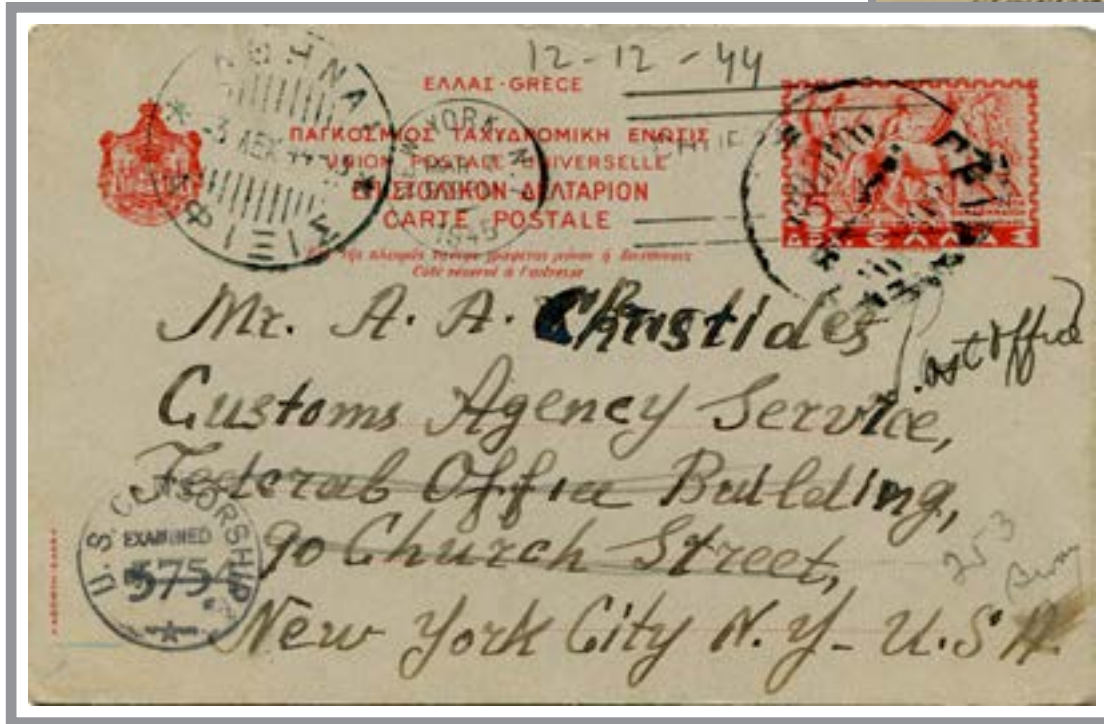 12-12-44
ΕΛΛΑΣ-GRECE
ΠΑΓΚΟΣΜΙΟΣ ΤΑΧΥΔΡΟΜΙΚΗ ΕΝΩΣΙΣ
UNION POSTALE UNIVERSELLE
ΕΠΙΣΤΟΛΙΚΟΝ ΔΕΛΤΑΡΙΟΝ
CARTE POSTALE
Côté réservé à l'adresse
ΑΘΗΝΑΙ
-3 ΔΕΚ 44
ΕΦΙΞΙΣ
NEW YORK N.Y.
1945
5
ΔΡ. ΕΛΛΑΣ
Mr. A. A. Christides
Post Office
Customs Agency Service,
Federal Office Building,
90 Church Street,
New York City N.Y- U.S.A.
U.S. CENSORSHIP
EXAMINED
253